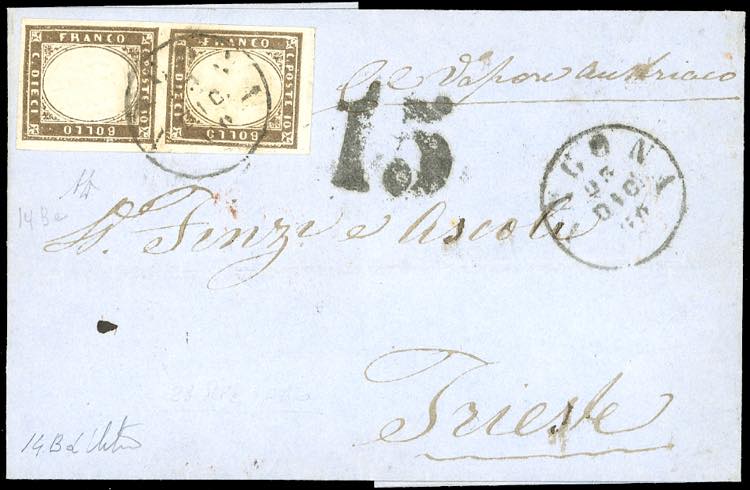 FRANCO
C. DIECI
C. POSTE 10
BOLLO
FRANCO
C. DIECI
C. POSTE 10
BOLLO
Vapore austriaco
15
ANCONA
DIC
14 Ba
S. Finzi e Ascoli
Trieste
14B